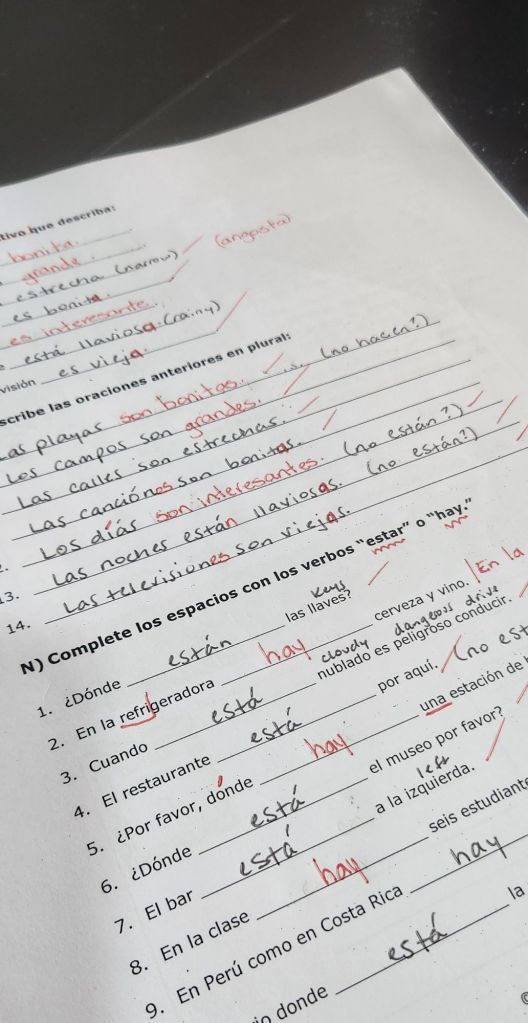 que describa:
bonita.
grande.
estrecha (narrow) (angosta)
es bonita.
es interesante.
está llaviosa. (rainy)
visión es vieja.
scribe las oraciones anteriores en plural:
Las playas son bonitas. (no hacen?)
Los campos son grandes.
Las calles son estrechas.
Las canciónes son bonitas.
Los días son interesantes. (no están?)
13. Las noches están llaviosas. (no están?)
14. Las televisiones son viejas.
N) Complete los espacios con los verbos "estar" o "hay."
keys
1. ¿Dónde están las llaves? En la
2. En la refrigeradora hay cerveza y vino.
cloudy dangeous drive
3. Cuando está nublado es peligroso conducir.
4. El restaurante está por aquí. (no est
5. ¿Por favor, dónde hay una estación de
6. ¿Dónde está el museo por favor?
left
7. El bar está a la izquierda.
8. En la clase hay seis estudiant
9. En Perú como en Costa Rica hay
donde está la